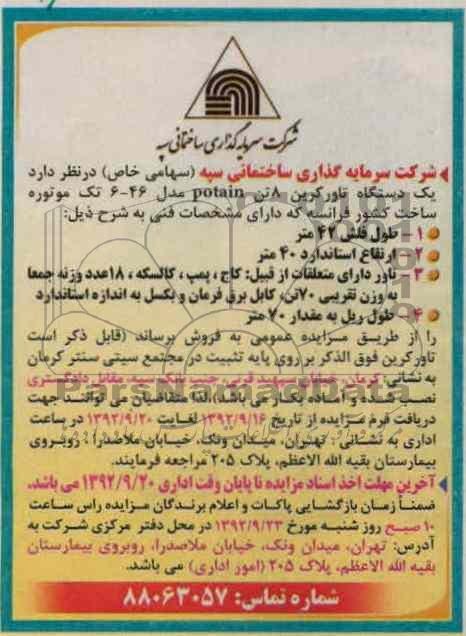 شرکت سرمایه گذاری ساختمانی سپه
شرکت سرمایه گذاری ساختمانی سپه (سهامی خاص) درنظر دارد
یک دستگاه تاورکرین ۸تن potain مدل ۴۶-۶ تک موتوره
ساخت کشور فرانسه که دارای مشخصات فنی به شرح ذیل:
۱ - طول فلش ۴۲ متر
۲ - ارتفاع استاندارد ۴۰ متر
۳ - تاور دارای متعلقات از قبیل: کاج ، پمپ ، کالسکه ، ۱۸عدد وزنه جمعا
به وزن تقریبی ۷۰تن، کابل برق فرمان و بکسل به اندازه استاندارد
۴ - طول ریل به مقدار ۷۰ متر
را از طریق مزایده عمومی به فروش برساند (قابل ذکر است
تاورکرین فوق الذکر بر روی پایه تثبیت در مجتمع سیتی سنتر کرمان
به نشانی: کرمان، خیابان شهید قرنی، جنب بانک سپه، مقابل دادگستری
نصب شده و آماده بکار می باشد)، لذا متقاضیان می توانند جهت
دریافت فرم مزایده از تاریخ ۱۳۹۲/۹/۱۶ لغایت ۱۳۹۲/۹/۲۰ در ساعت
اداری به نشانی: تهران، میدان ونک، خیابان ملاصدرا، روبروی
بیمارستان بقیه الله الاعظم، پلاک ۲۰۵ مراجعه فرمایند.
آخرین مهلت اخذ اسناد مزایده تا پایان وقت اداری ۱۳۹۲/۹/۲۰ می باشد.
ضمناً زمان بازگشایی پاکات و اعلام برندگان مزایده راس ساعت
۱۰ صبح روز شنبه مورخ ۱۳۹۲/۹/۲۳ در محل دفتر مرکزی شرکت به
آدرس: تهران، میدان ونک، خیابان ملاصدرا، روبروی بیمارستان
بقیه الله الاعظم، پلاک ۲۰۵ (امور اداری) می باشد.
شماره تماس: ۸۸۰۶۳۰۵۷